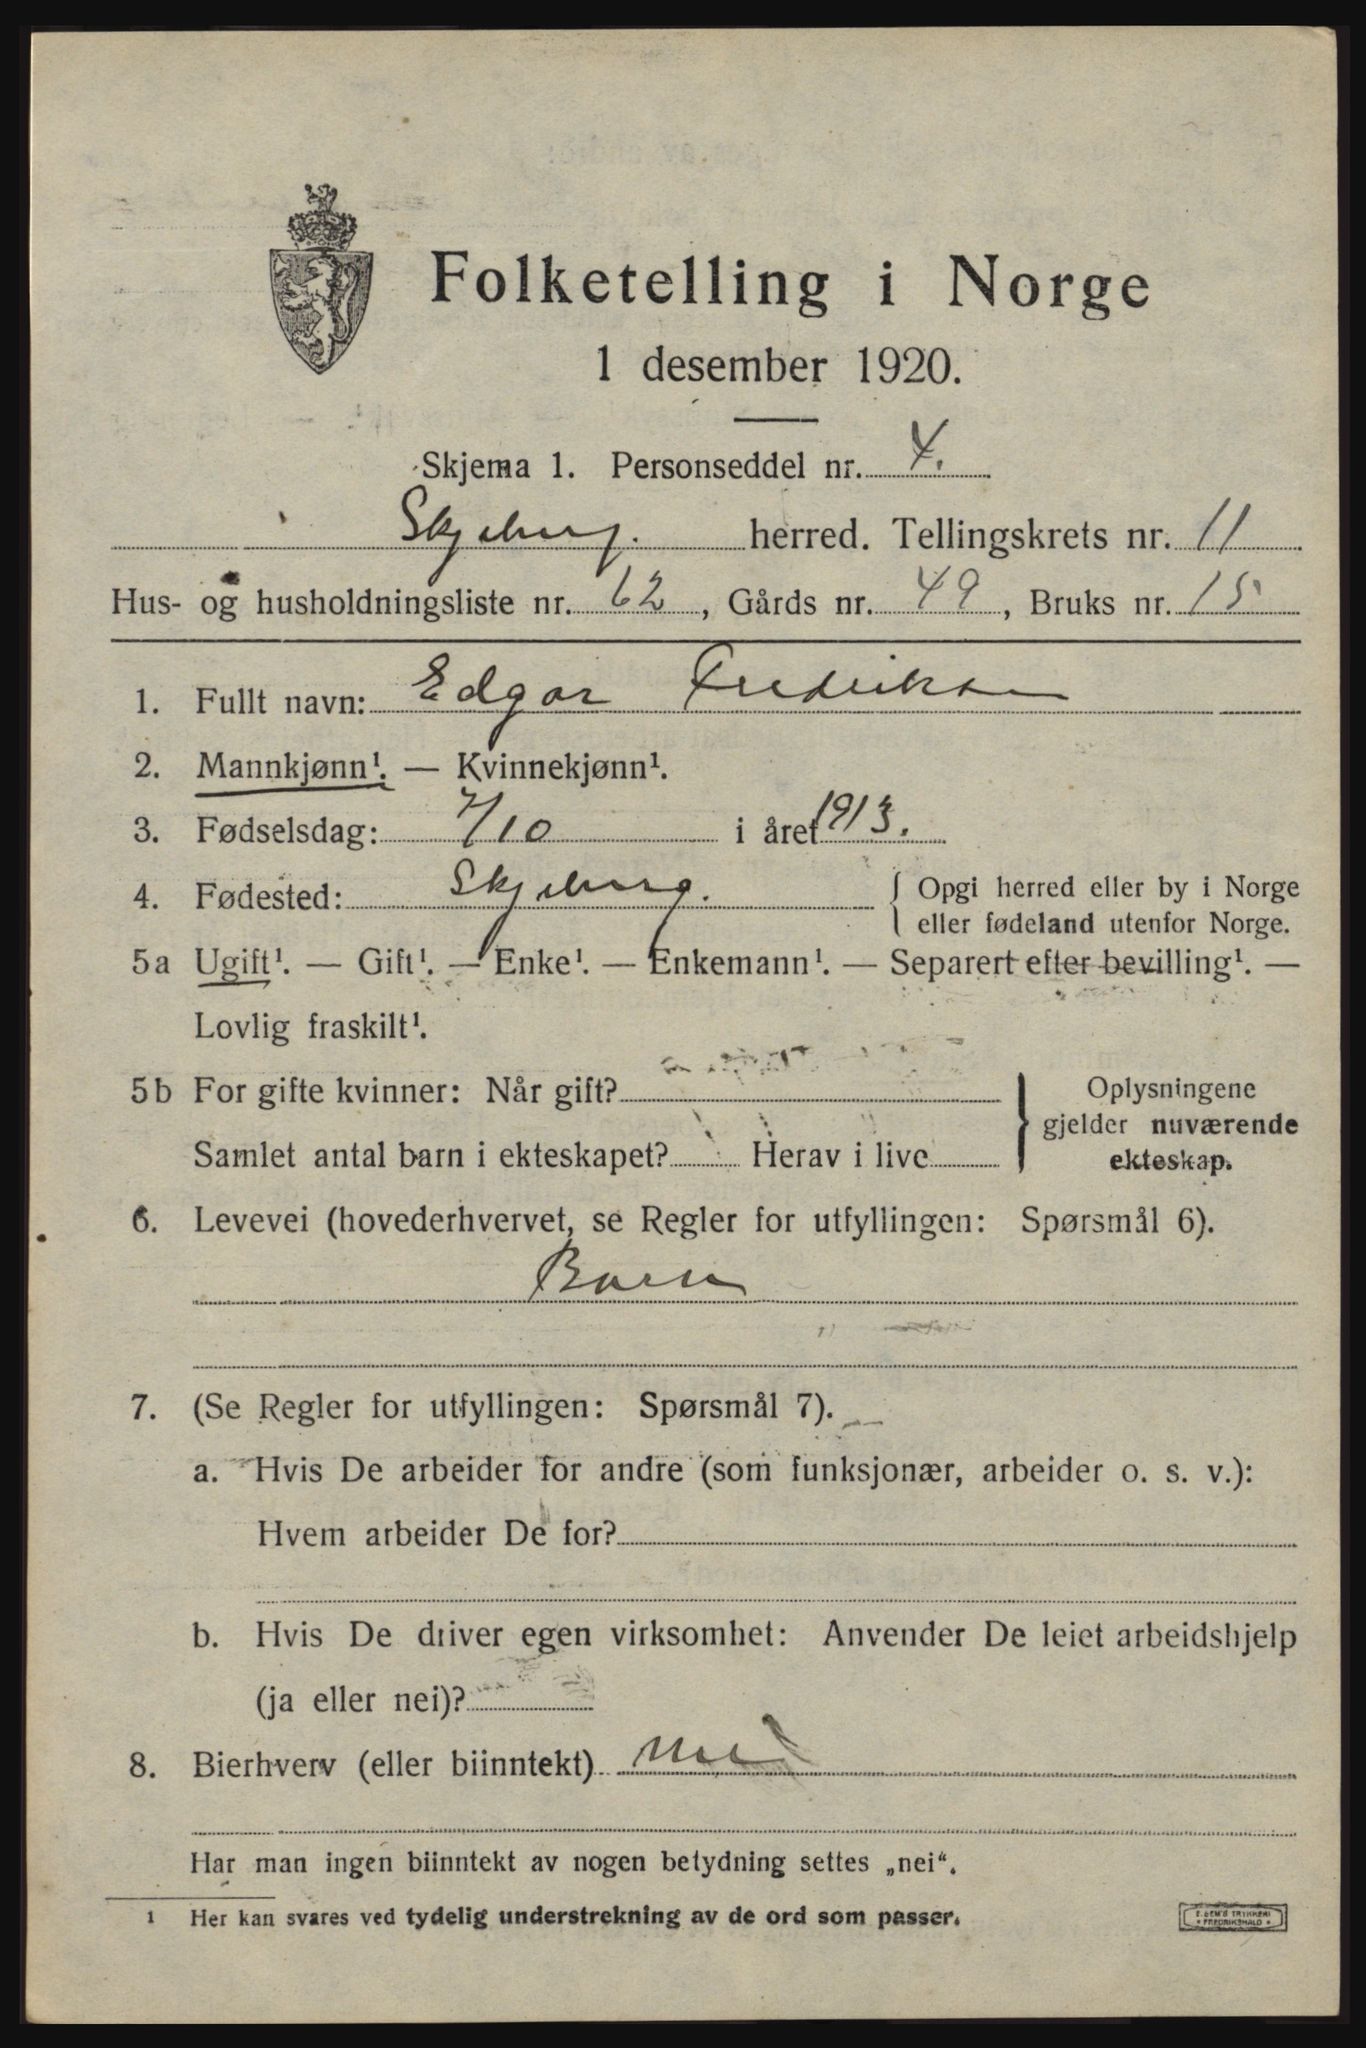 Folketelling i Norge
1 desember 1920.
Skjema 1. Personseddel nr. 4.
Skjeberg. herred. Tellingskrets nr. 11
Hus- og husholdningsliste nr. 62, Gårds nr. 49, Bruks nr. 15
1. Fullt navn: Edgar Fredriksen
2. Mannkjønn¹. — Kvinnekjønn¹.
3. Fødselsdag: 7/10 i året 1913.
4. Fødested: Skjeberg. { Opgi herred eller by i Norge
eller fødeland utenfor Norge.
5a Ugift¹. — Gift¹. — Enke¹. — Enkemann¹. — Separert efter bevilling¹. —
Lovlig fraskilt¹.
5b For gifte kvinner: Når gift?
Samlet antal barn i ekteskapet? Herav i live
} Oplysningene
gjelder nuværende
ekteskap.
6. Levevei (hovederhvervet, se Regler for utfyllingen: Spørsmål 6).
Barn
7. (Se Regler for utfyllingen: Spørsmål 7).
a. Hvis De arbeider for andre (som funksjonær, arbeider o. s. v.):
Hvem arbeider De for?
b. Hvis De driver egen virksomhet: Anvender De leiet arbeidshjelp
(ja eller nei)?
8. Bierhverv (eller biinntekt)
Har man ingen biinntekt av nogen betydning settes „nei“.
¹ Her kan svares ved tydelig understrekning av de ord som passer.
E. SEM'S TRYKKERI
• FREDRIKSHALD •